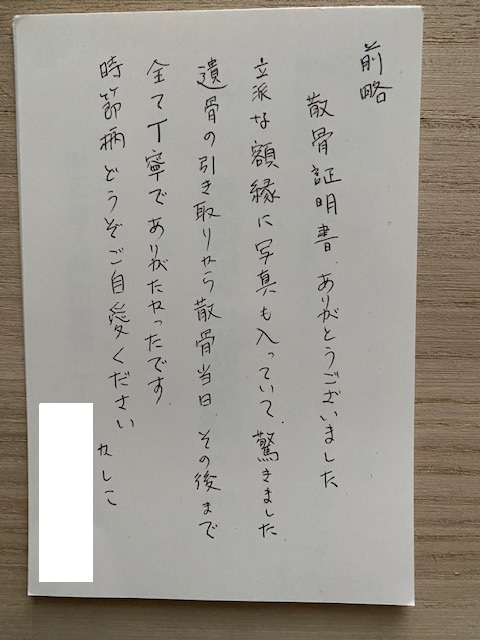 前略
散骨証明書、ありがとうございました
立派な額縁に写真も入っていて、驚きました
遺骨の引き取りから散骨当日、その後まで
全て丁寧でありがたかったです
時節柄どうぞご自愛ください
かしこ